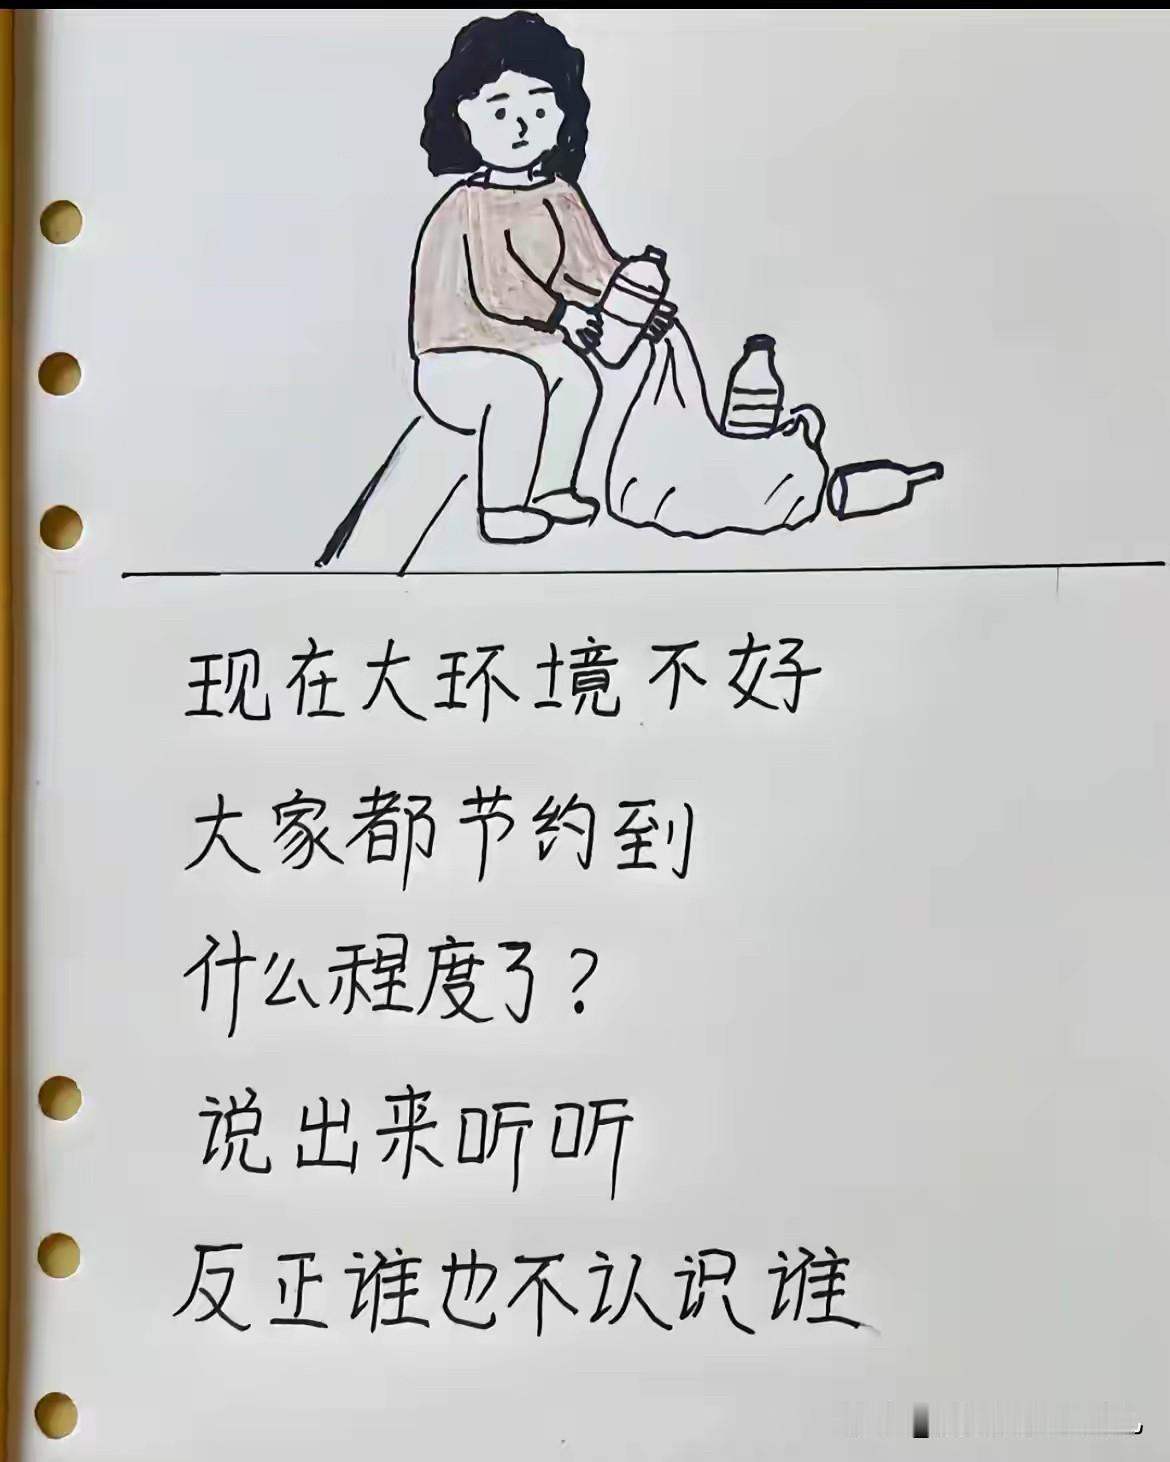 现在大环境不好
大家都节约到
什么程度了?
说出来听听
反正谁也不认识谁